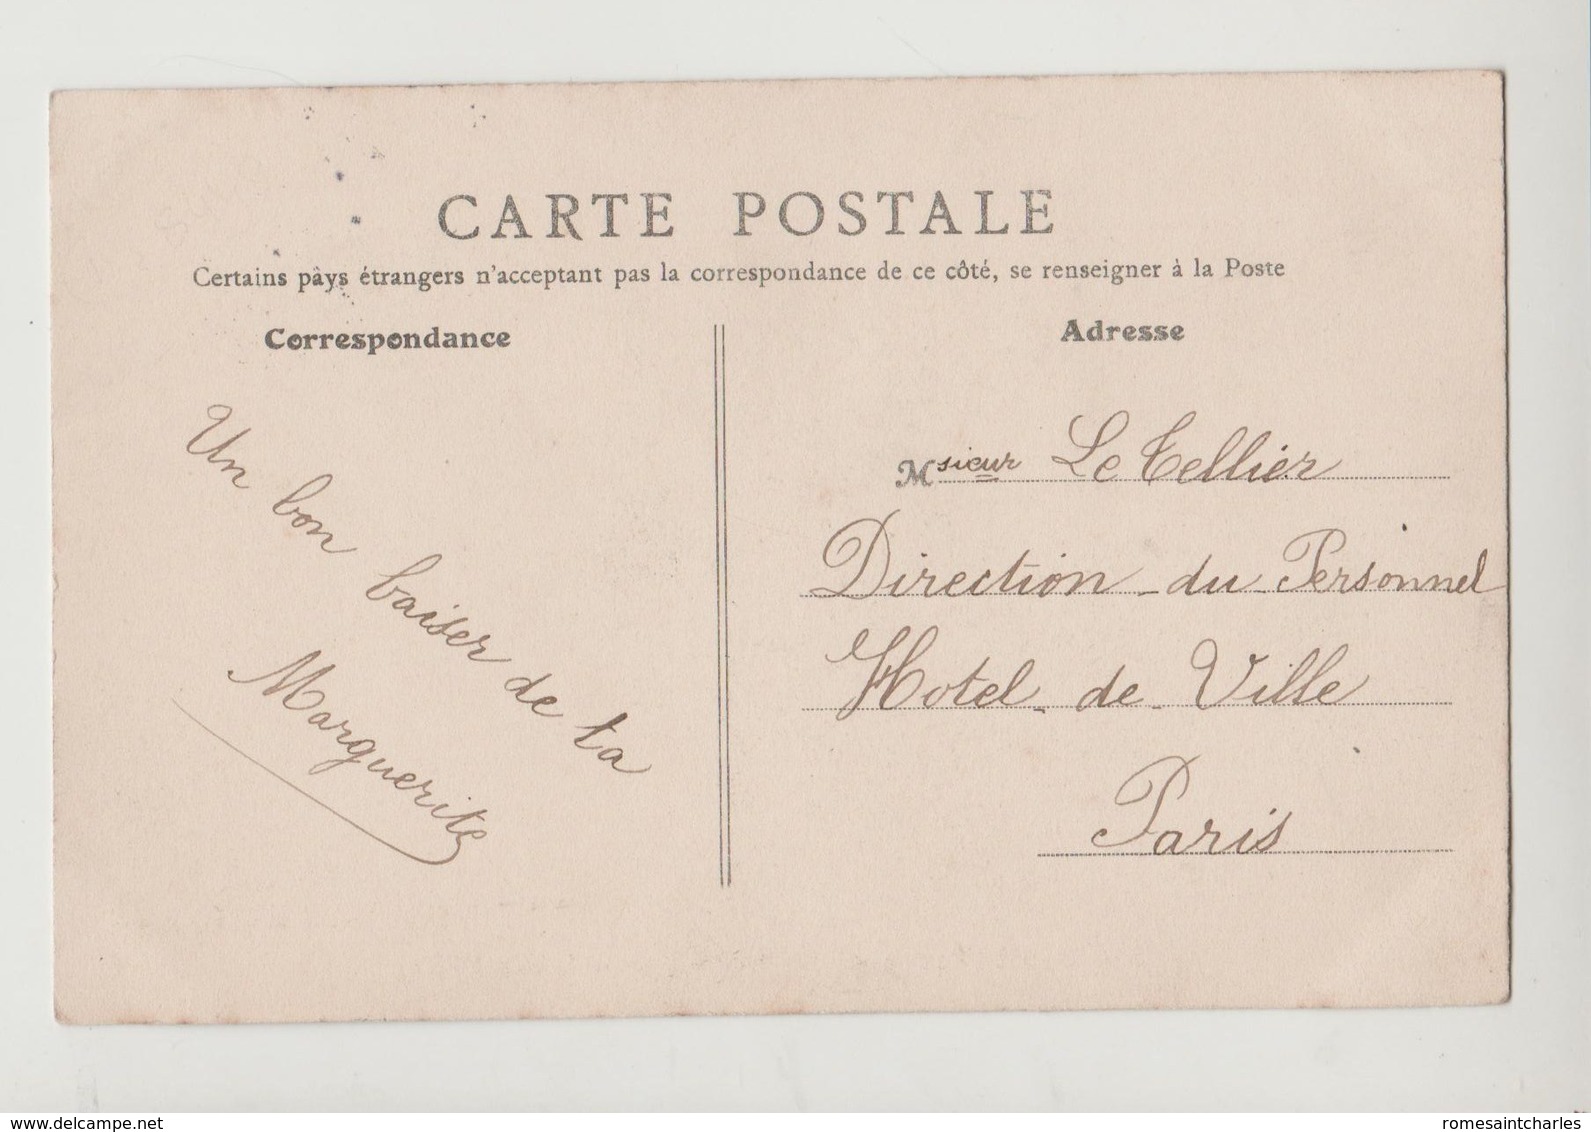 CARTE POSTALE
Certains pays étrangers n'acceptant pas la correspondance de ce côté, se renseigner à la Poste
Correspondance
Un bon baiser de ta
Marguerite
Adresse
Msieur Le Tellier
Direction du Personnel
Hotel de Ville
Paris
www.delcampe.net
romesaintcharles